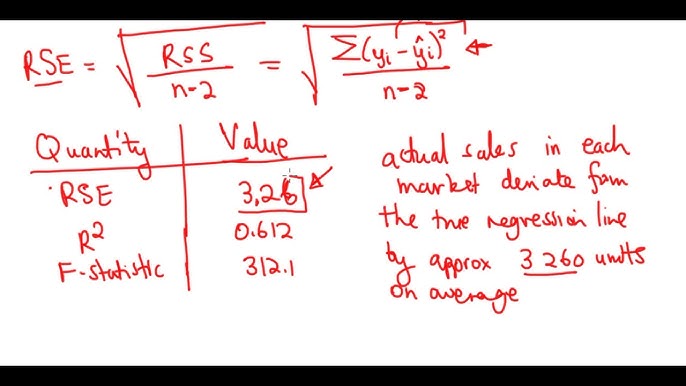 RSE = √(RSS / n-2) = √(Σ(yᵢ - ŷᵢ)² / n-2)
Quantity Value
RSE 3.26
R² 0.612
F-statistic 312.1
actual sales in each
market deviate from
the true regression line
by approx 3 260 units
on average